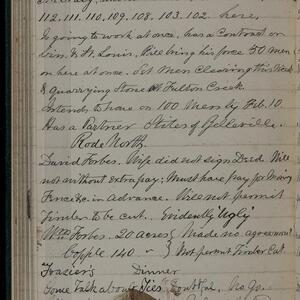 112. 111. 110. 109. 108. 103. 102. here.
Is going to work at once. has a Contract on
Cin. & St. Louis. Will bring his force 50 men
on here at once. Set Men Clearing this Week
& Quarrying Stone at Fulton Creek.
Intends to have on 100 Men by Feb. 10.
Has a Partner Stiles of Belleville.
Rode North.
David Forbes. Wife did not sign Deed. Will
not without extra pay; Must have pay for moving
Fence &c in advance. Will not permit
Timber to be cut. Evidently "Ugly"
Wm Forbes. 20 acres } Made no agreement
Copple 140 " } Not permit Timber Cut
Fraziers Dinner
Some Talk about Ties no go.